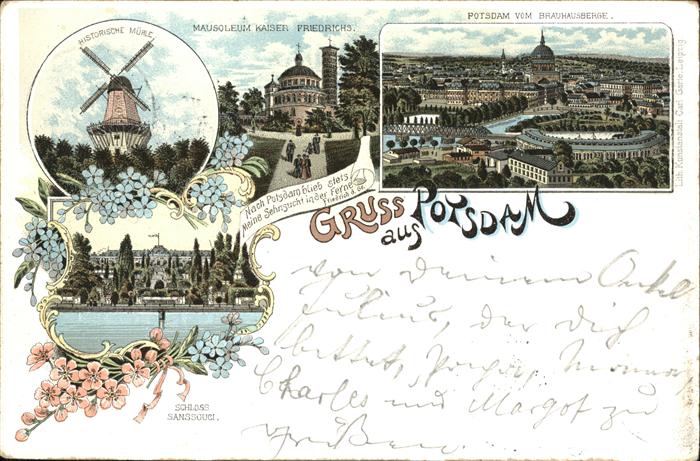 HISTORISCHE MÜHLE.
MAUSOLEUM KAISER FRIEDRICHS.
POTSDAM VOM BRAUHAUSBERGE.
Lith. Kunstanstalt Carl Garte, Leipzig
Nach Potsdam blieb stets
Meine Sehnsucht in der Ferne
Friedrich d. Gr.
GRUSS
aus POTSDAM
SCHLOSS
SANSSOUCI.
von Deinem Onkel
Julius, der dich
bittet, Papa, Mama
Charles und Margot zu
grüßen.